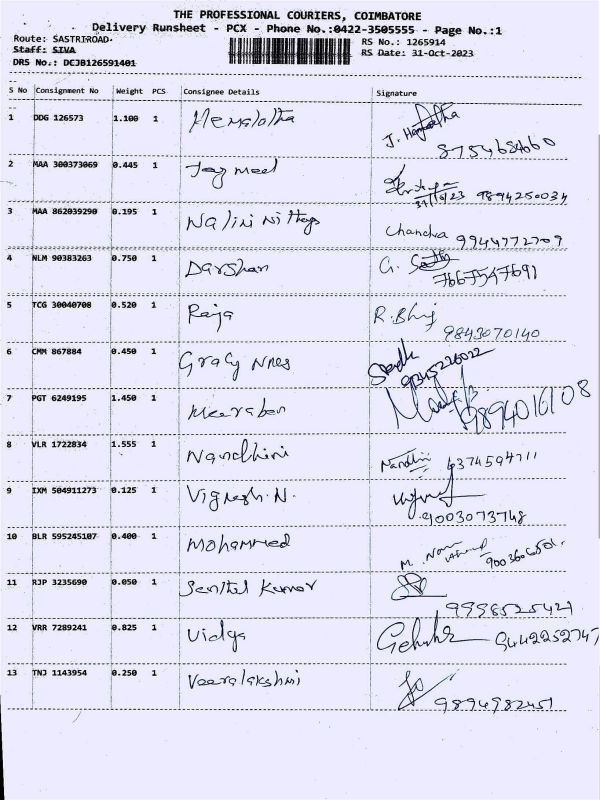 THE PROFESSIONAL COURIERS, COIMBATORE
Delivery Runsheet - PCX - Phone No.:0422-3505555 - Page No.:1
Route: SASTRIROAD
RS No.: 1265914
Staff: SIVA
RS Date: 31-Oct-2023
DRS No.: DCJB126591401
S No Consignment No Weight PCS Consignee Details Signature
1 DDG 126573 1.100 1 Hemalatha J. Hemalatha
2 MAA 300373069 0.445 1
31/10/23 9894250034
3 MAA 862039290 0.195 1 Nalini Chandra 9944772709
4 NLM 90383263 0.750 1 Darshan G.
7667547691
5 TCG 30040708 0.520 1 Raja R.
9843070140
6 CMM 867884 0.450 1 Gracy
9345226022
7 PGT 6249195 1.450 1 Meeraben
9894016108
8 VLR 1722834 1.555 1 Nandhini Nandhini 6374594711
9 IXM 504911273 0.125 1 Vignesh.N.
9003073748
10 BLR 595245107 0.400 1 Mohammed M.
11 RJP 3235690 0.050 1 Senthil Kumar
9998525421
12 VRR 7289241 0.825 1 Vidya 9442252747
13 TNJ 1143954 0.250 1 Veeralakshmi
9894982451